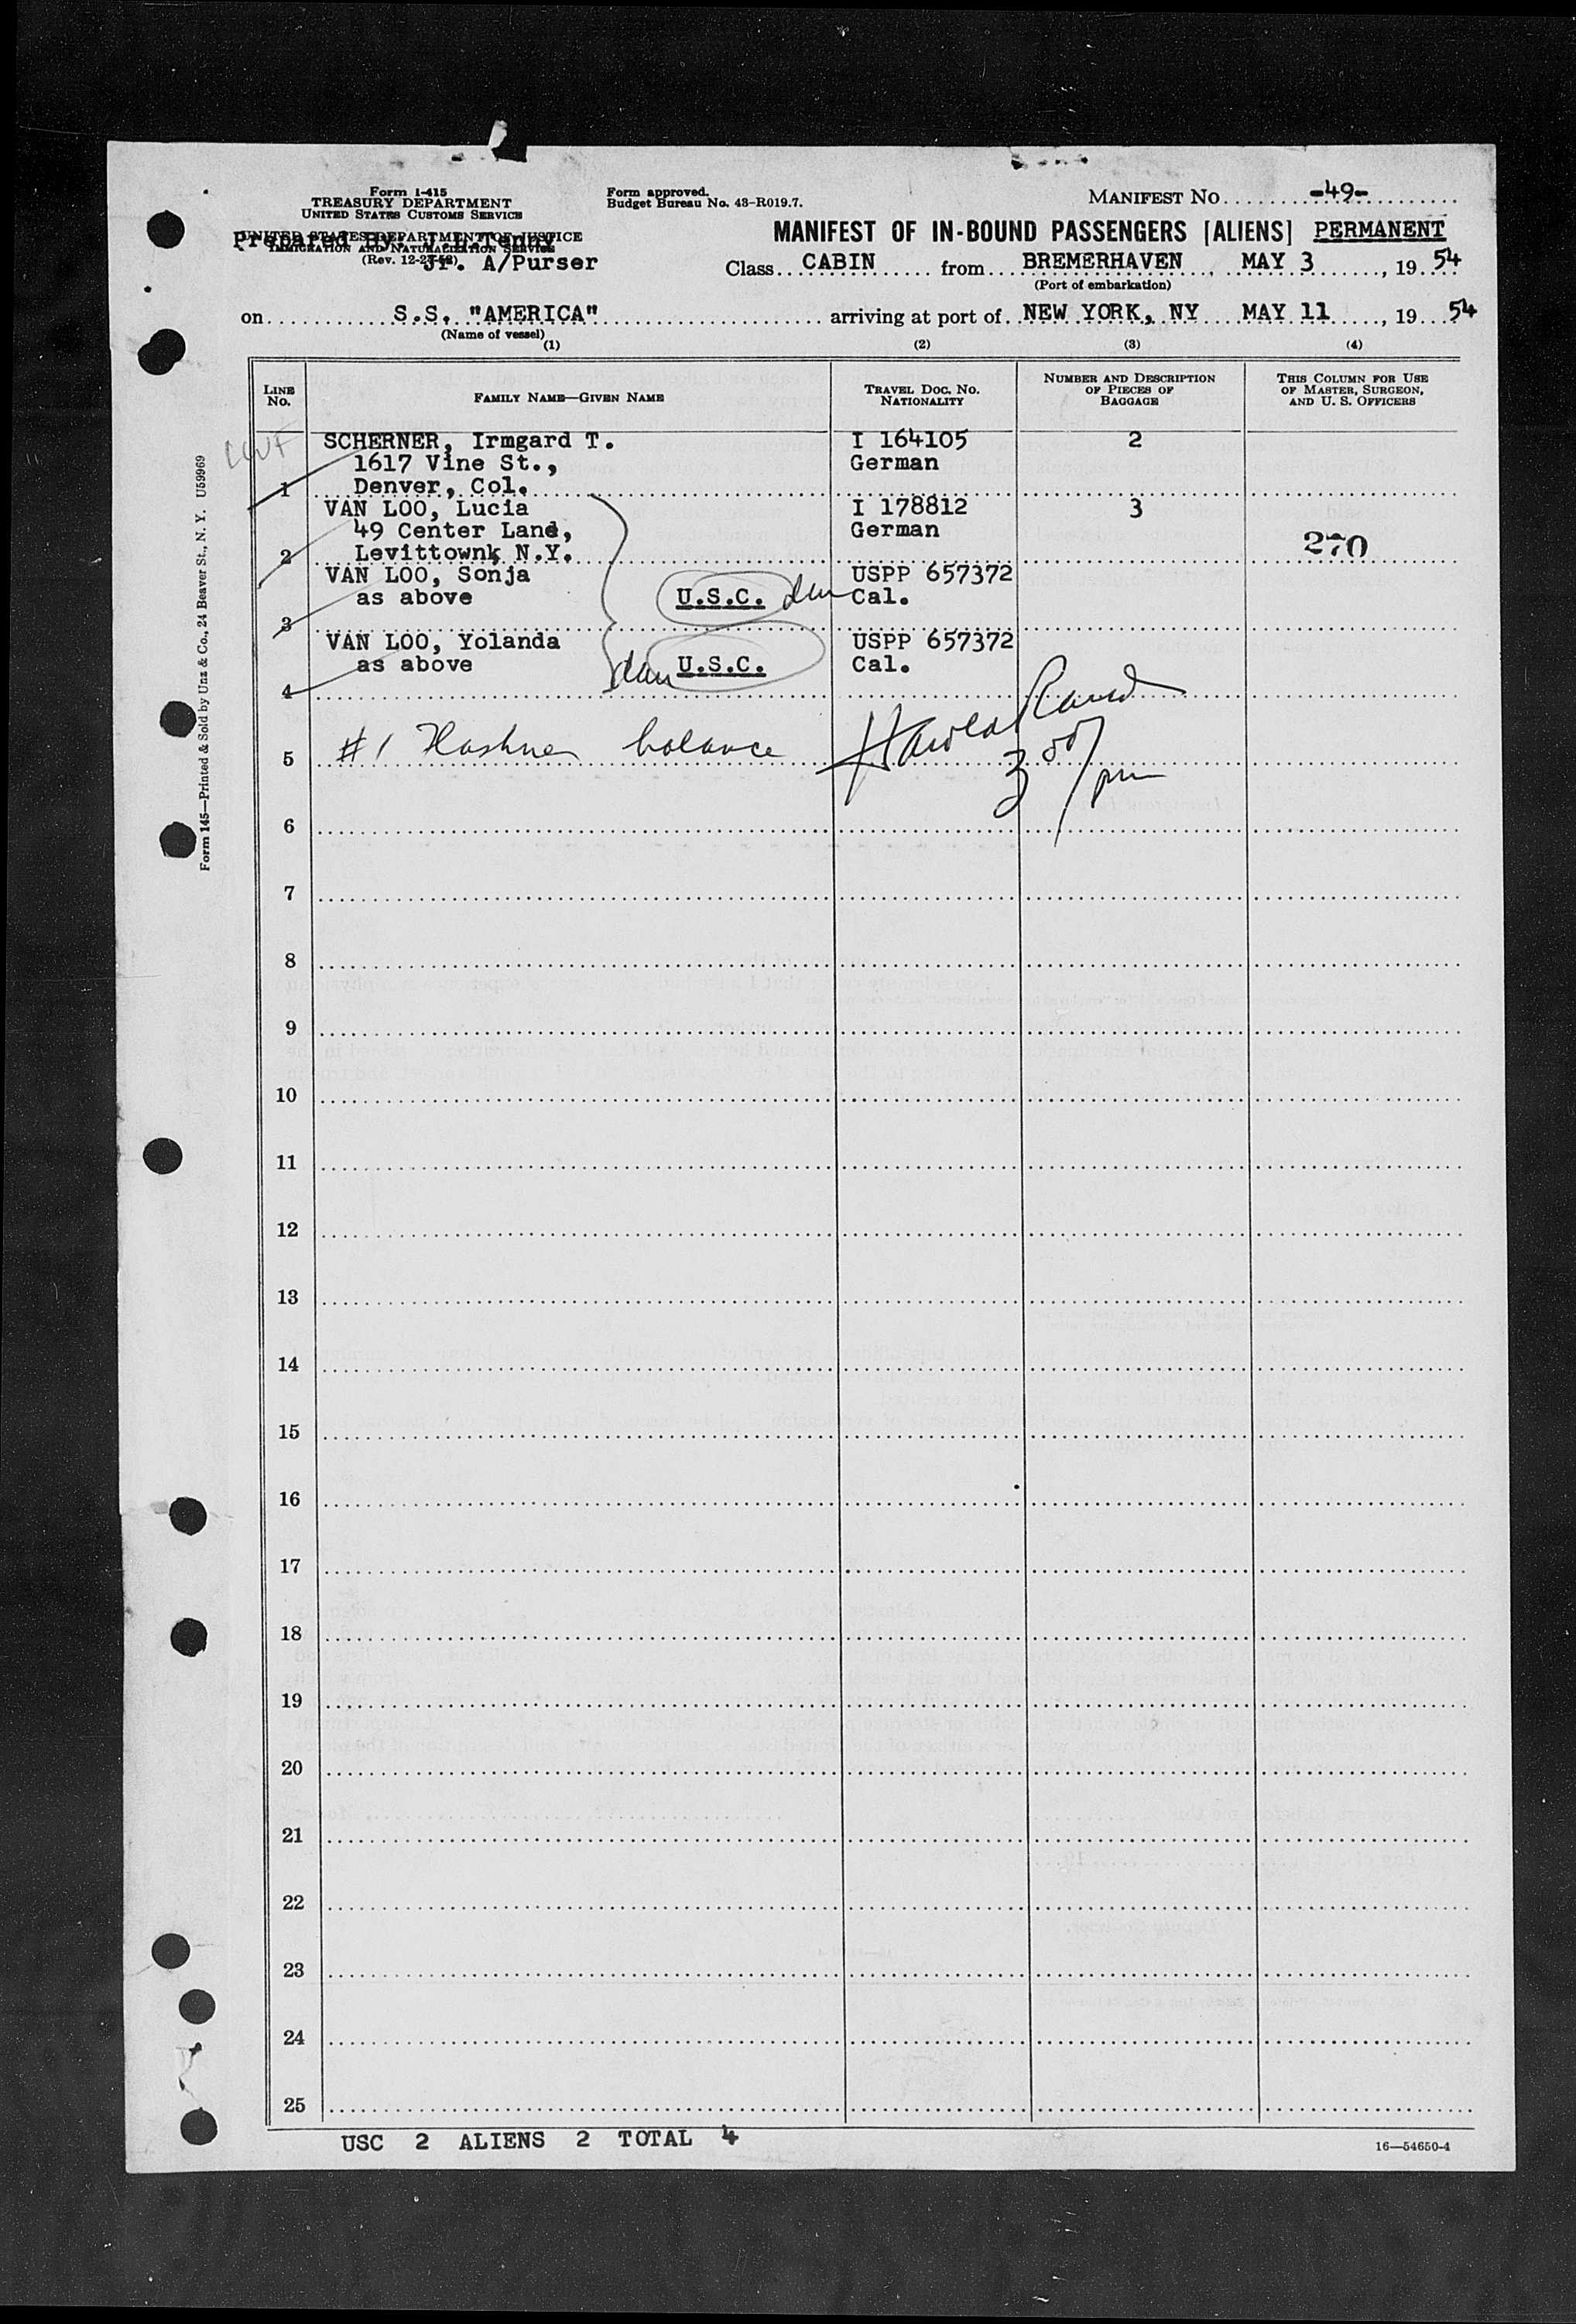 Form I-415
TREASURY DEPARTMENT
UNITED STATES CUSTOMS SERVICE
UNITED STATES DEPARTMENT OF JUSTICE
IMMIGRATION AND NATURALIZATION SERVICE
Prepared By. J.
Jr. A/Purser
Form approved.
Budget Bureau No. 43-R019.7.
MANIFEST No. -49-
MANIFEST OF IN-BOUND PASSENGERS [ALIENS] PERMANENT
Class CABIN from BREMERHAVEN MAY 3, 19 54
(Port of embarkation)
on S.S. "AMERICA" arriving at port of NEW YORK, NY MAY 11, 19 54
(Name of vessel)
(1) (2) (3) (4)
LINE No. FAMILY NAME—GIVEN NAME TRAVEL DOC. NO. NATIONALITY NUMBER AND DESCRIPTION OF PIECES OF BAGGAGE THIS COLUMN FOR USE OF MASTER, SURGEON, AND U. S. OFFICERS
SCHERNER, Irmgard T. I 164105 2
1617 Vine St., German
1 Denver, Col.
VAN LOO, Lucia I 178812 3
49 Center Land, German
2 Levittownk N.Y. 270
VAN LOO, Sonja USPP 657372
as above U.S.C. Cal.
3
VAN LOO, Yolanda USPP 657372
as above U.S.C. Cal.
4
5 #1 balance
3 00/pm
6
7
8
9
10
11
12
13
14
15
16
17
18
19
20
21
22
23
24
25
USC 2 ALIENS 2 TOTAL 4
16—54650-4
Form 145—Printed & Sold by Unz & Co., 24 Beaver St., N. Y. U59969